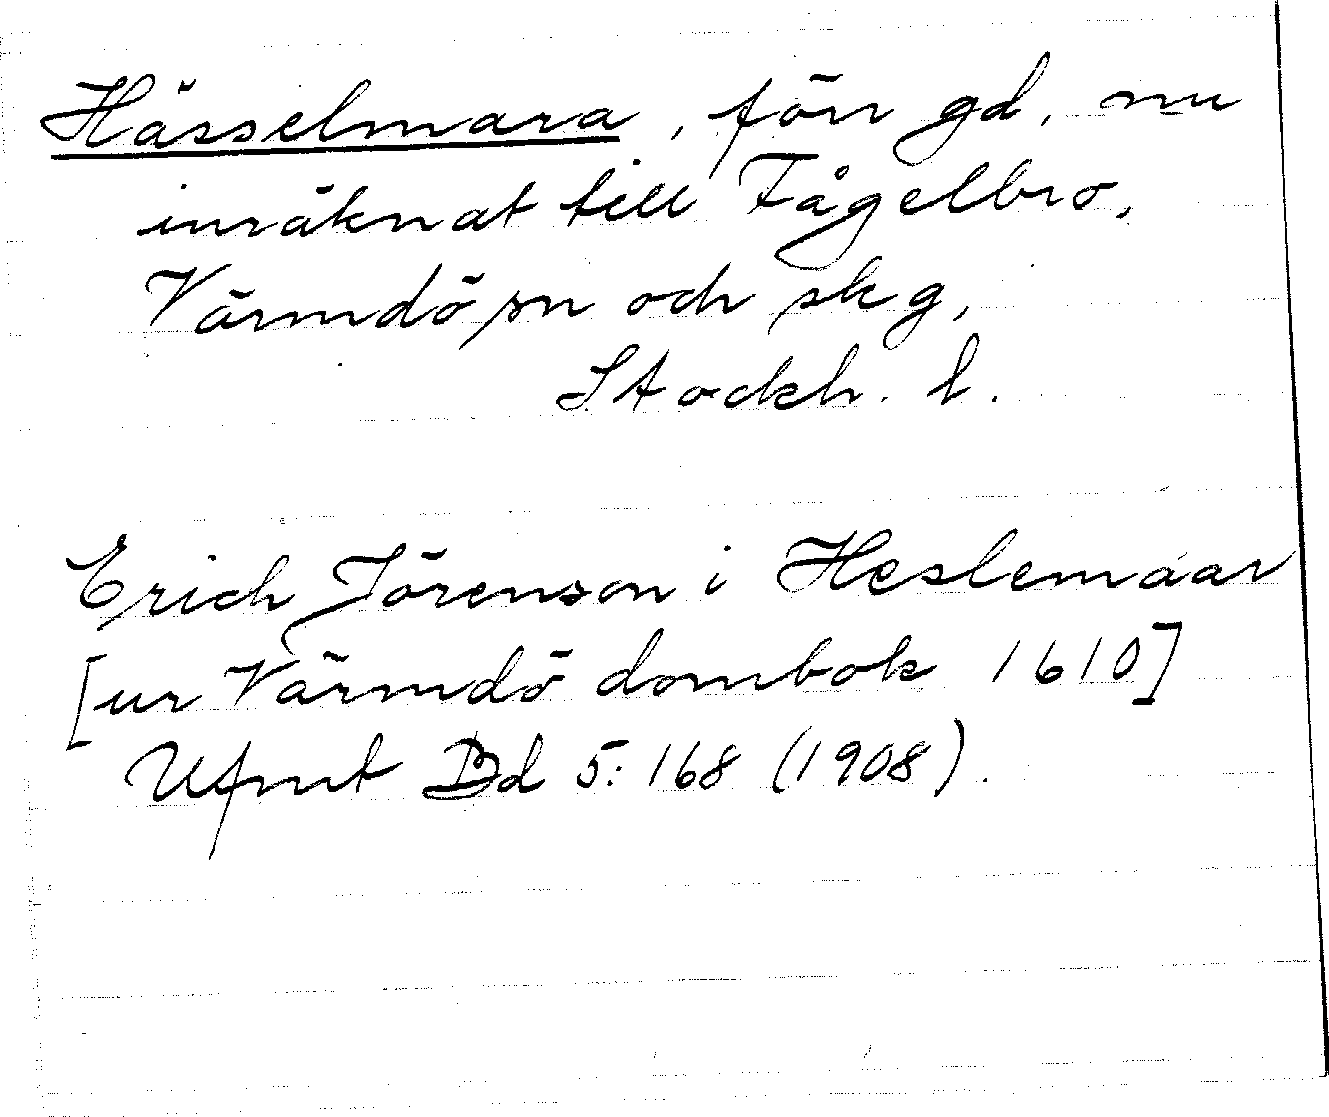 Hässelmara, förr gd, nu
inräknat till Fågelbro,
Värmdö sn och skg,
Stockh. l.
Erich Jörenson i Heslemaar
[ur Värmdö dombok 1610]
Ufmt Bd 5: 168 (1908).